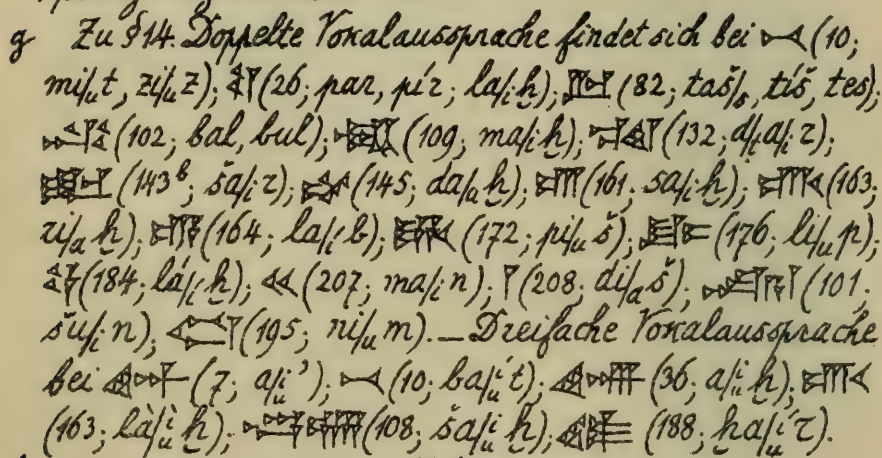 g Zu § 14. Doppelte Vokalaussprache findet sich bei 𒁁 (10;
mi/ut, zi/uz); 𒌓 (26; par, pír; la/iḫ); 𒌨 (82; taš/s, tíš, tes);
𒁄 (102; bal, bul); 𒈤 (109; ma/iḫ); (132; d/ta/ir);
(143ᵇ; ša/ir); (145; da/aḫ); (161; sa/iḫ); (163;
ri/aḫ); (164; la/íb); (172; pi/uš); (176; li/up);
(184; láj/íḫ); 𒎙 (207; ma/in); 𒁹 (208; di/aš); (101;
šu/in); (195; ni/um). — Dreifache Vokalaussprache
bei 𒀪 (7; a/i/u’); 𒁁 (10; ba/í/ut); 𒄴 (36; a/i/uḫ);
(163; là/ì/uḫ); (108; ša/i/uḫ); (188; ḫa/í/ur).